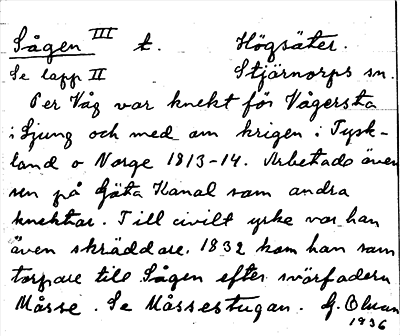 Sågen III t. Högsäter.
Se lapp II Stjärnorps sn.
Per Våg var knekt för Vågersta
i Ljung och med om krigen i Tysk-
land o Norge 1813-14. Arbetade även
sen på Göta Kanal som andra
knektar. Till civilt yrke var han
även skräddare. 1832 kom han som
torpare till Sågen efter svärfadern
Måsse. Se Måssestugan. G. Oman
1936